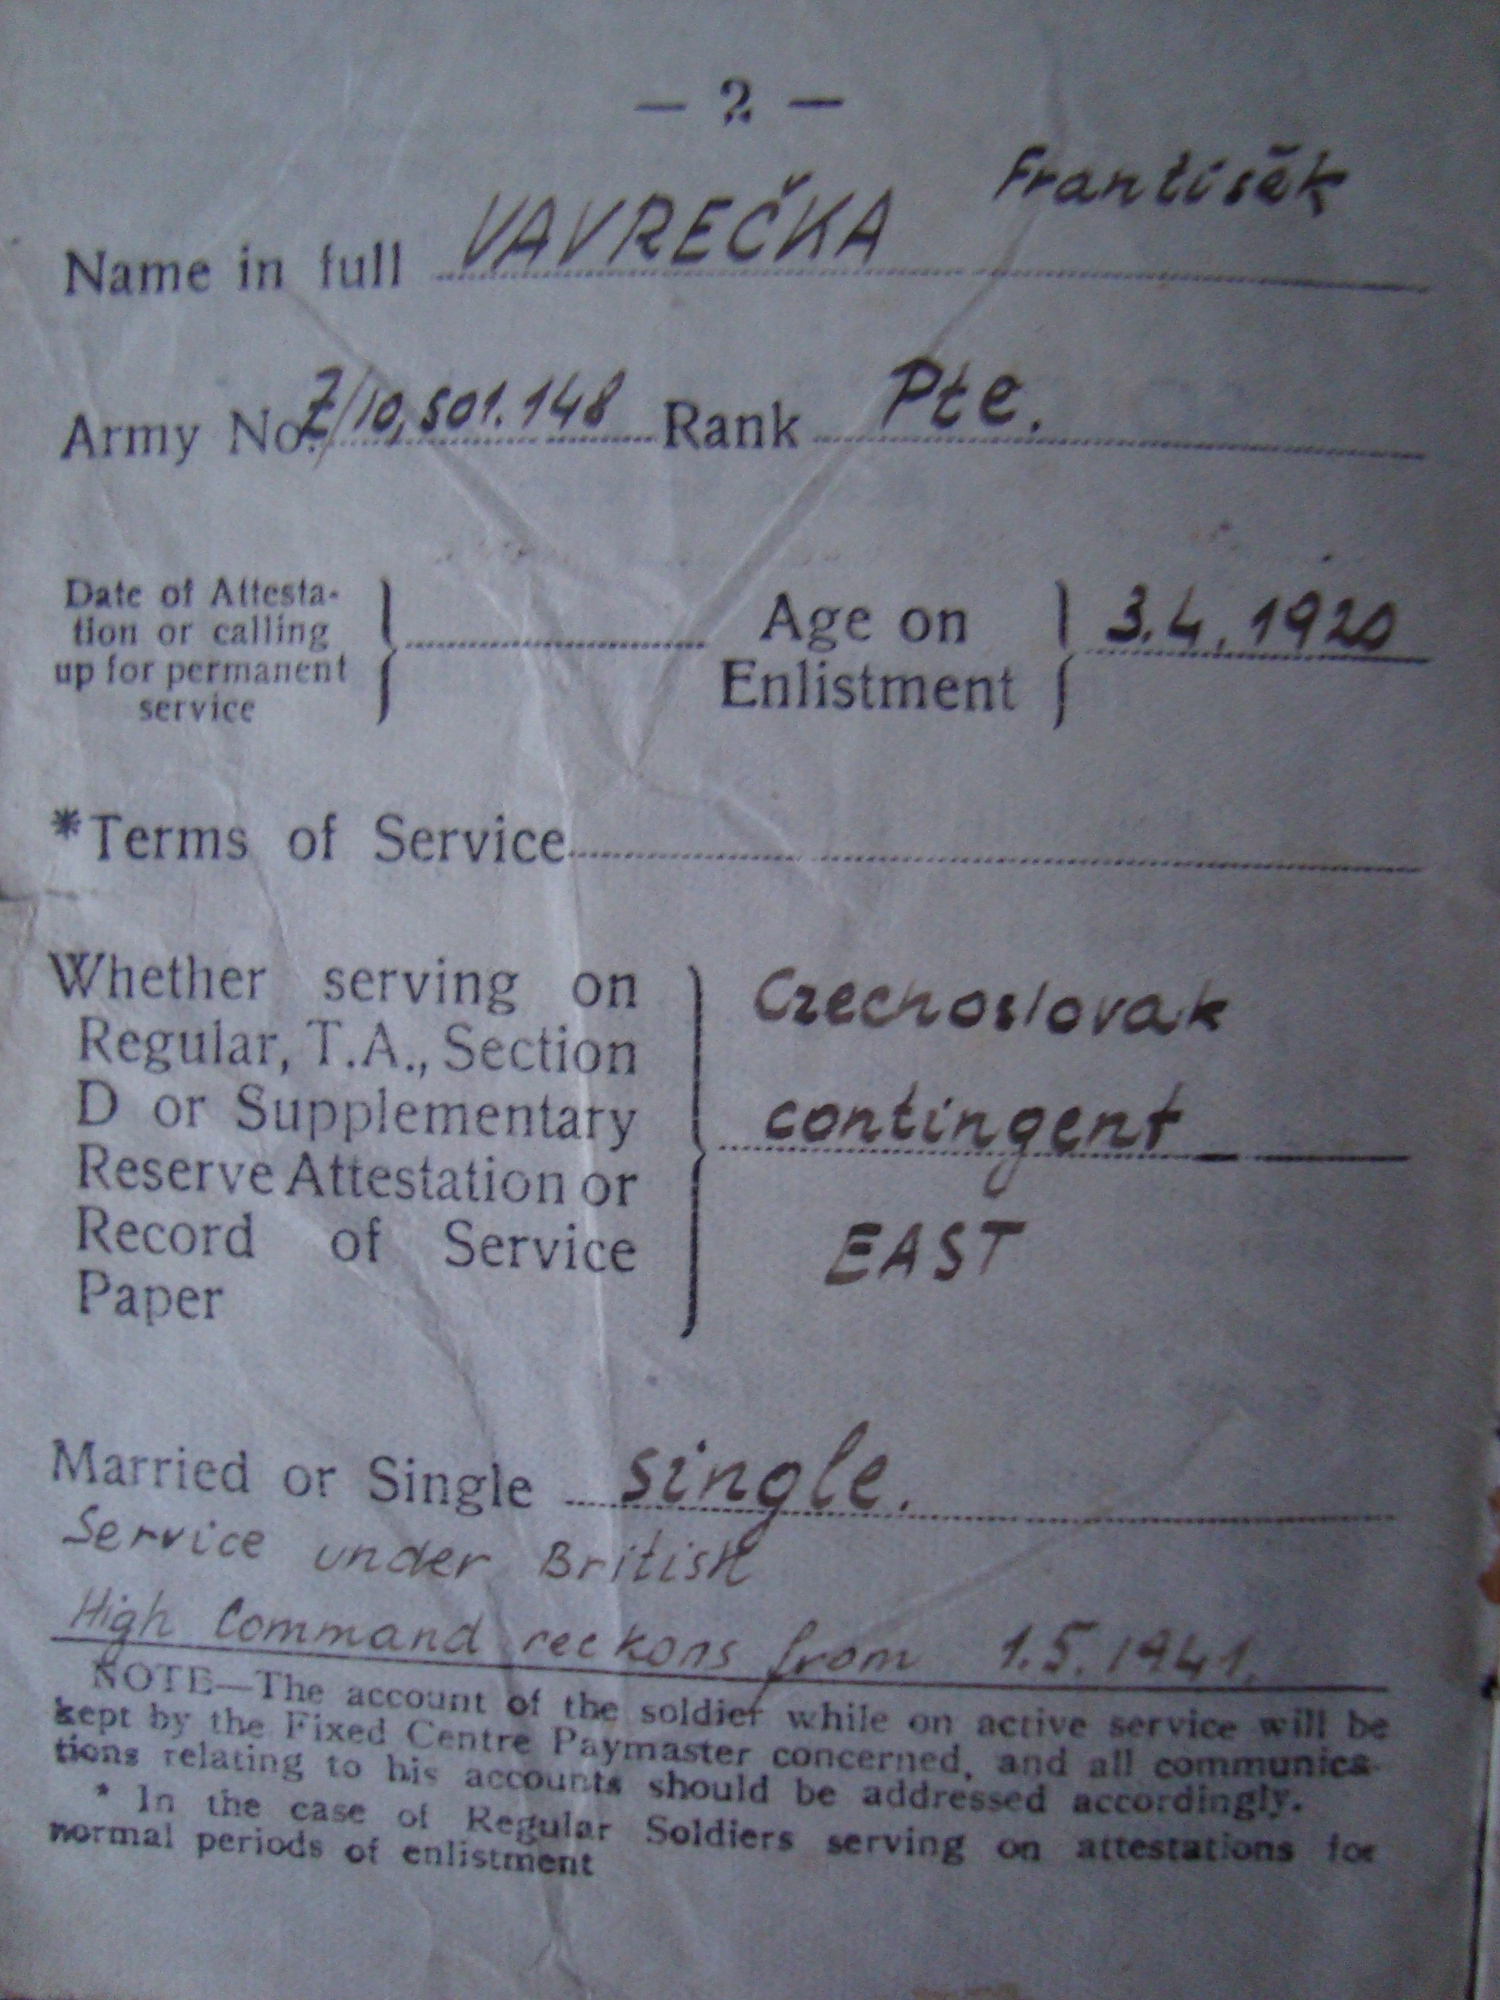 — 2 —
Name in full VAVREČKA František
Army No. Z/10,501.148 Rank Pte.
Date of Attesta-
tion or calling
up for permanent
service
Age on
Enlistment
3.4.1920
*Terms of Service
Whether serving on
Regular, T.A., Section
D or Supplementary
Reserve Attestation or
Record of Service
Paper
Czechoslovak
contingent
EAST
Married or Single single.
Service under British
High Command reckons from 1.5.1941.
NOTE—The account of the soldier while on active service will be
kept by the Fixed Centre Paymaster concerned, and all communica-
tions relating to his accounts should be addressed accordingly.
* In the case of Regular Soldiers serving on attestations for
normal periods of enlistment